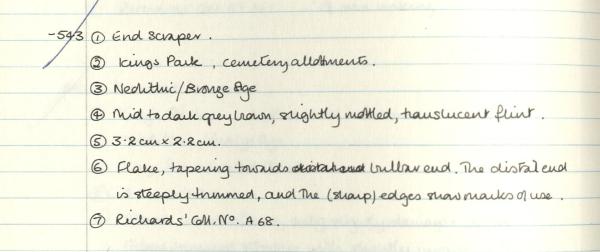 -543 ① End Scraper.
② Kings Park, cemetery allotments.
③ Neolithic/Bronze Age
④ Mid to dark grey brown, slightly mottled, translucent flint.
⑤ 3.2cm x 2.2cm.
⑥ Flake, tapering towards bulbar end. The distal end
is steeply trimmed, and the (sharp) edges show marks of use.
⑦ Richards' Coll. No. A 68.